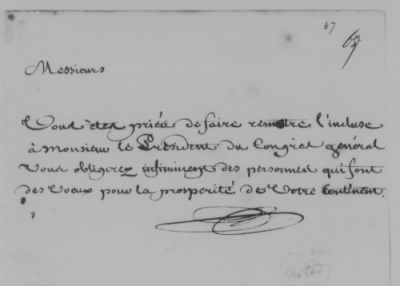 67
67
Messieurs
Vous etes priés de faire remettre l'incluse
à monsieur le Président du Congrés général
Vous obligerez infiniment des personnes qui font
des Voeux pour la prosperité de Votre Continent.